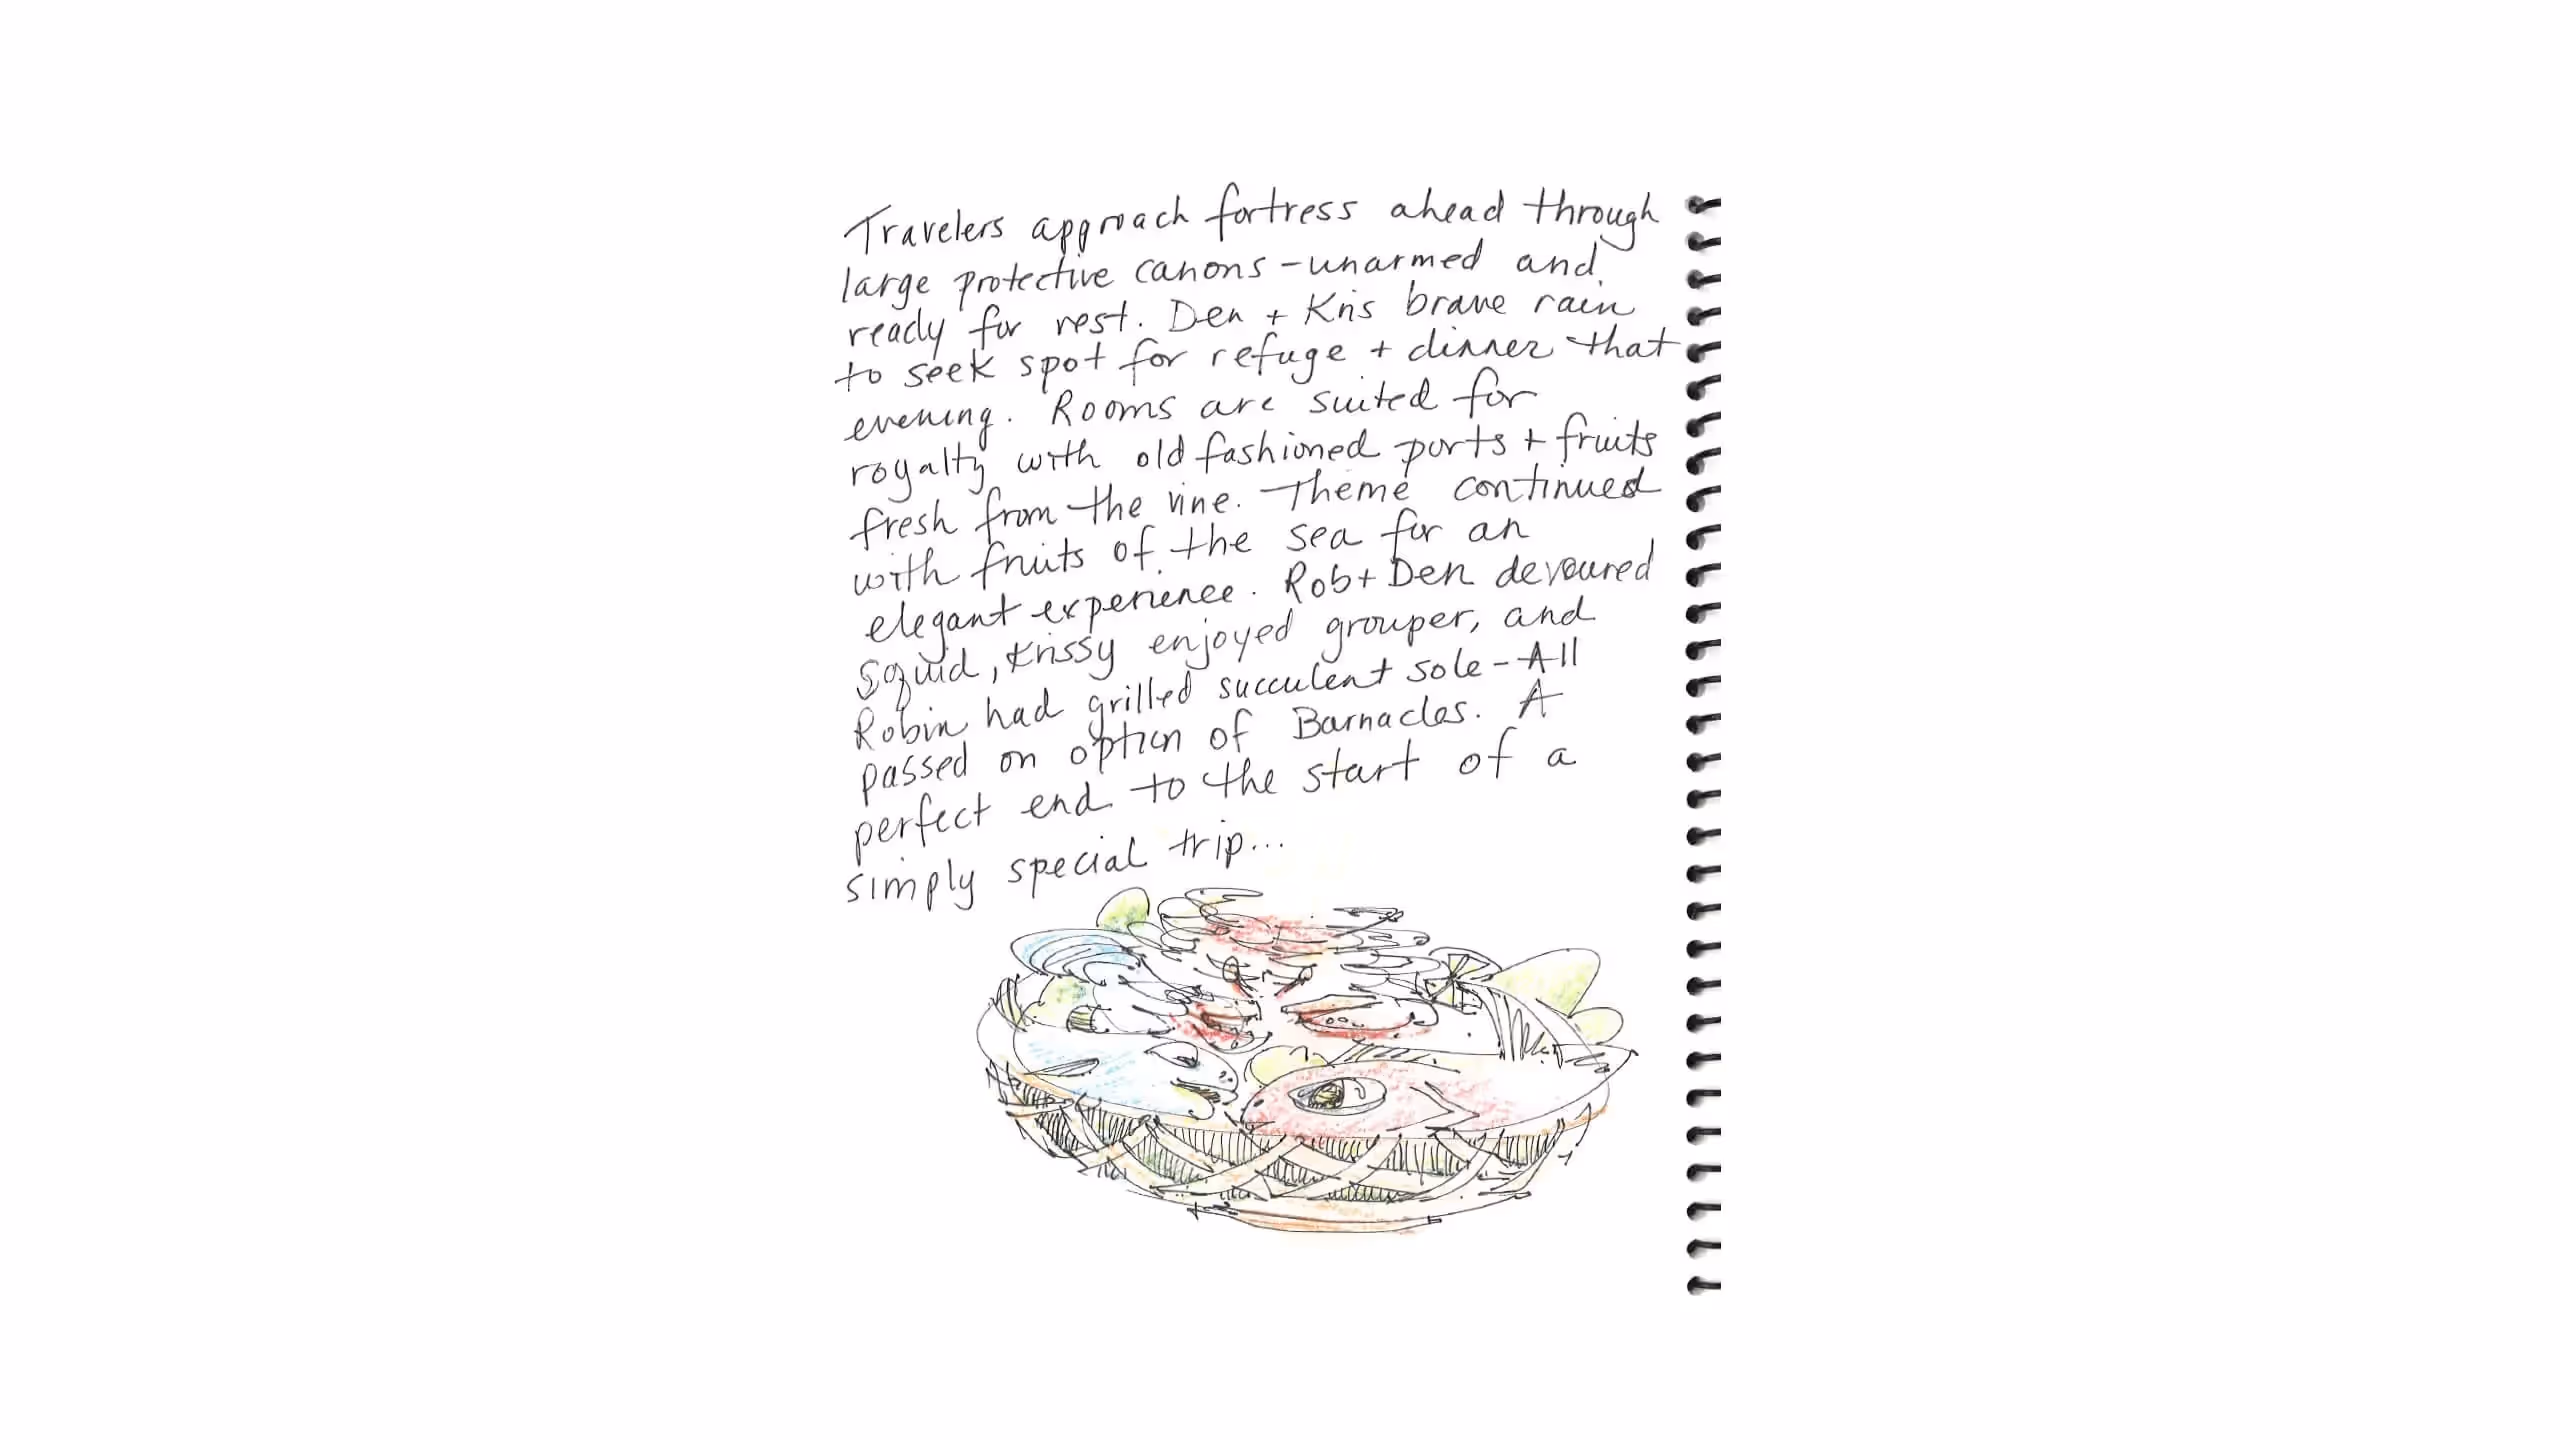 Travelers approach fortress ahead through
large protective canons - unarmed and
ready for rest. Den + Kris brave rain
to seek spot for refuge + dinner that
evening. Rooms are suited for
royalty with old fashioned ports + fruits
fresh from the vine. Theme continued
with fruits of the sea for an
elegant experience. Rob + Den devoured
squid, Krissy enjoyed grouper, and
Robin had grilled succulent sole - All
passed on option of Barnacles. A
perfect end to the start of a
simply special trip...